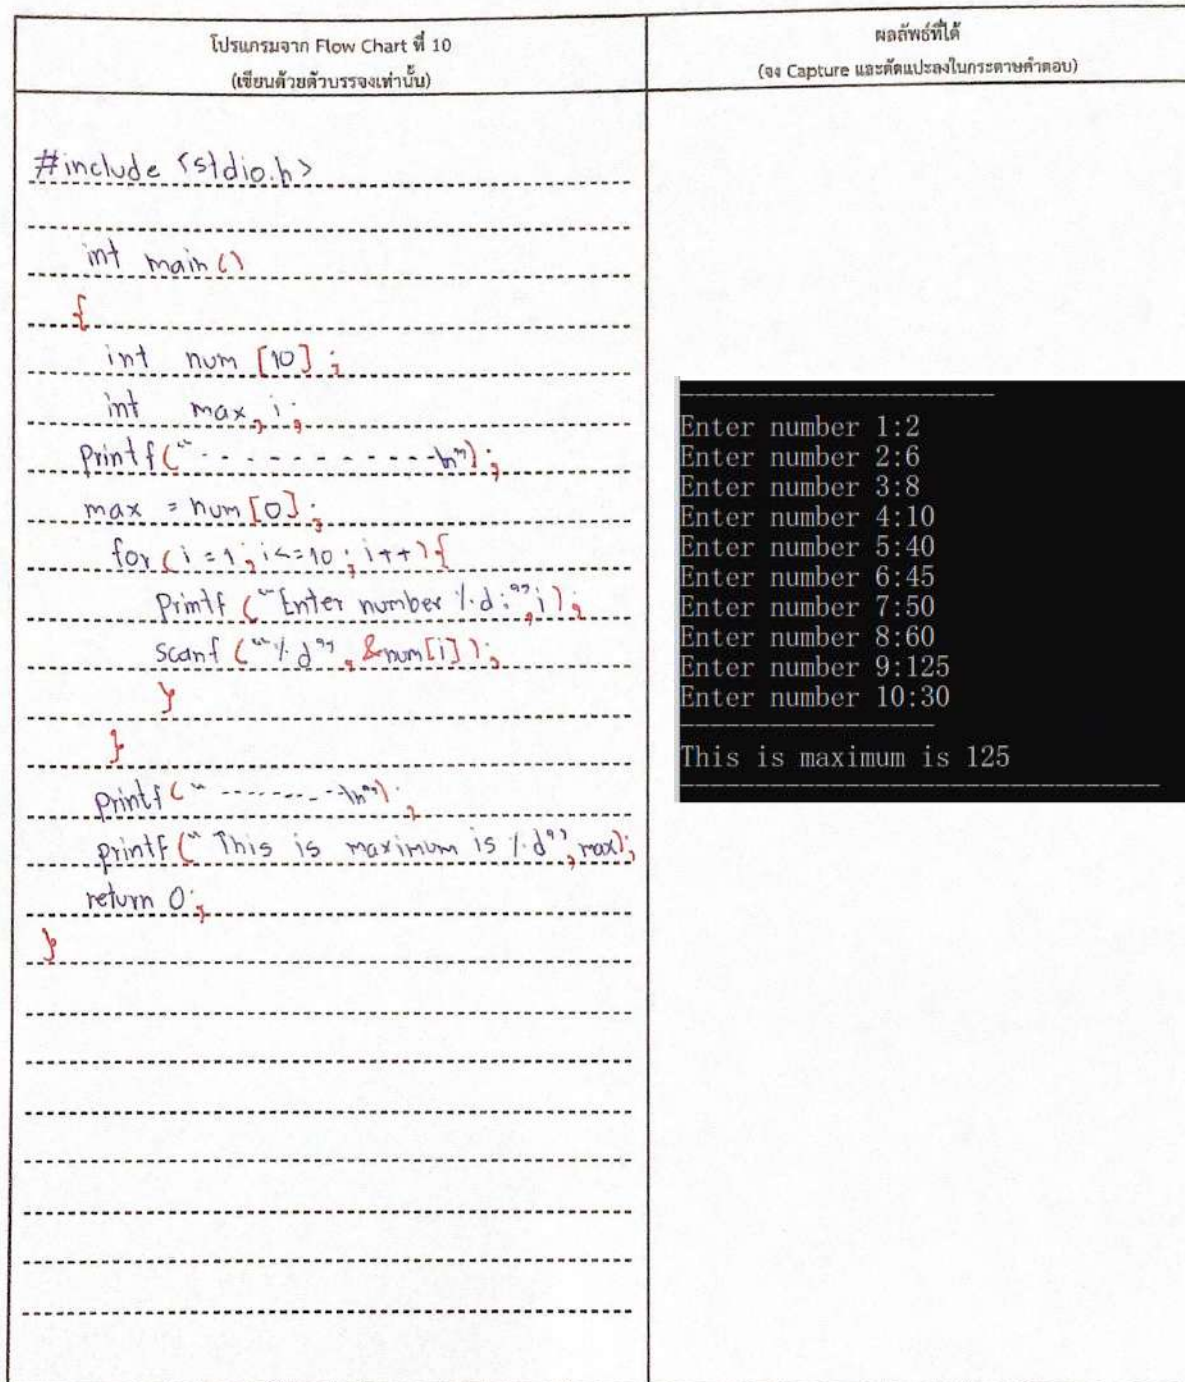 โปรแกรมจาก Flow Chart ที่ 10
(เขียนด้วยตัวบรรจงเท่านั้น)
ผลลัพธ์ที่ได้
(จง Capture และตัดแปะลงในกระดาษคำตอบ)
#include <stdio.h>
int main()
{
int num [10];
int max, i;
printf("- - - - - - - - - - - -\n");
max = num[0];
for (i = 1; i <= 10; i++){
Printf ("Enter number %d:", i);
scanf ("%d", &num[i]);
}
}
printf("---------\n");
printf(" This is maximum is %d", max);
return 0;
}
---------------------
Enter number 1:2
Enter number 2:6
Enter number 3:8
Enter number 4:10
Enter number 5:40
Enter number 6:45
Enter number 7:50
Enter number 8:60
Enter number 9:125
Enter number 10:30
-----------------
This is maximum is 125
--------------------------------